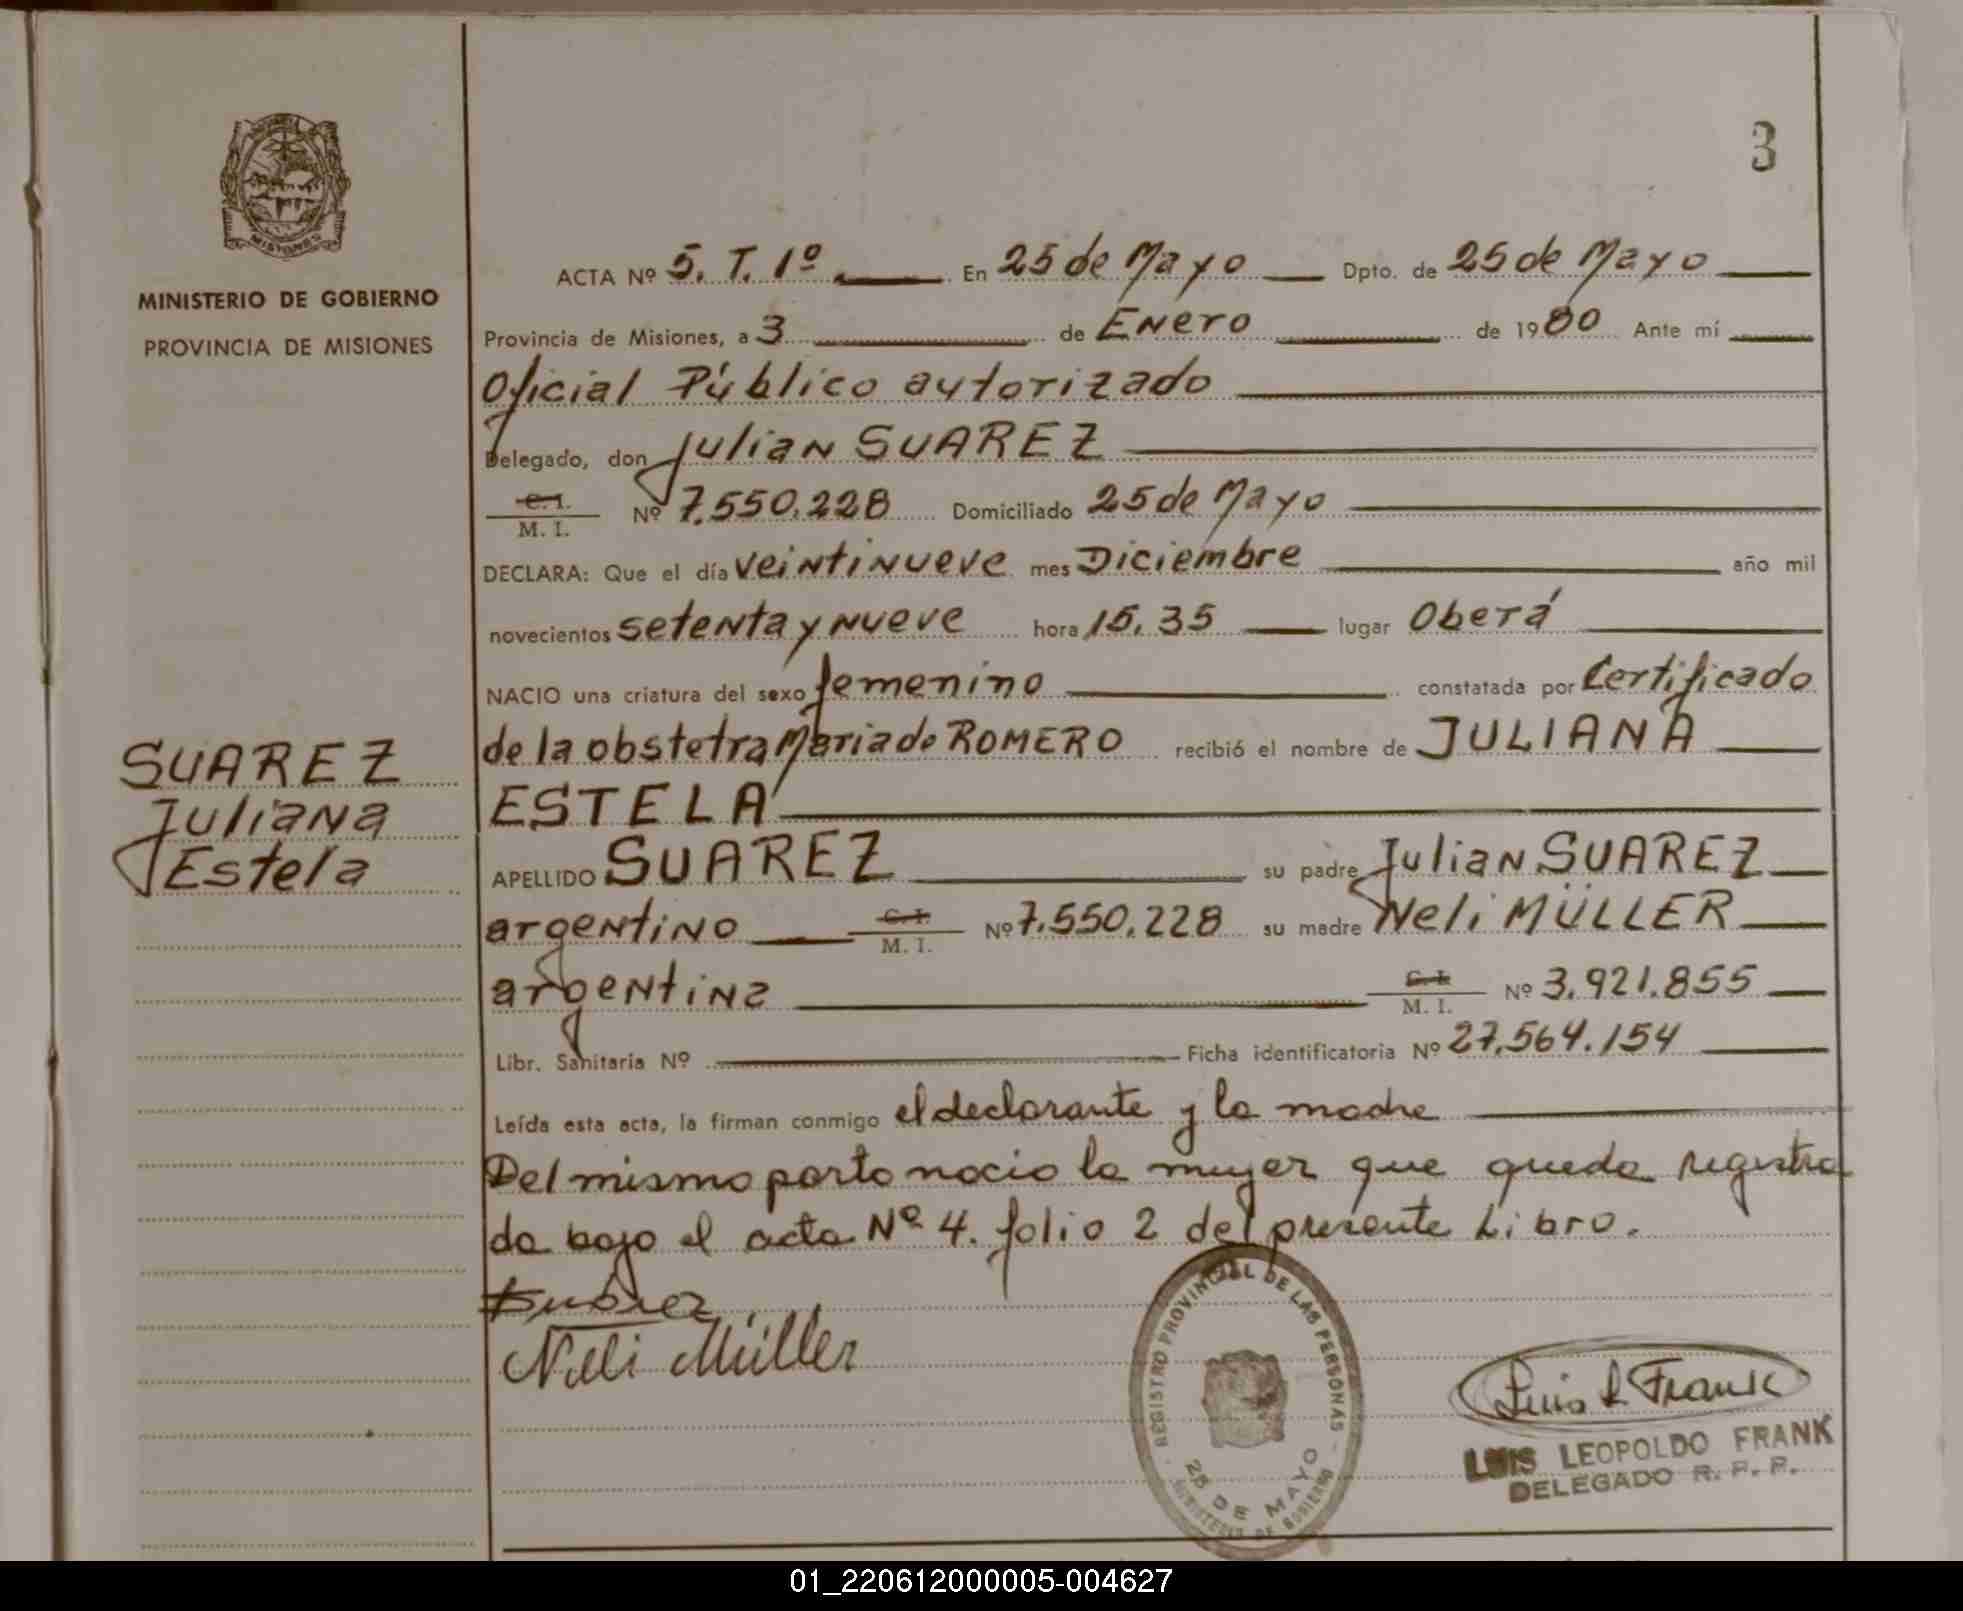 3
MINISTERIO DE GOBIERNO
PROVINCIA DE MISIONES
ACTA Nº 5. T. 1º En 25 de Mayo Dpto. de 25 de Mayo
Provincia de Misiones, a 3 de Enero de 1980 Ante mí
Oficial Público autorizado
Delegado, don Julian SUAREZ
C. I.
M. I. Nº 7.550.228 Domiciliado 25 de Mayo
DECLARA: Que el día veintinueve mes Diciembre año mil
novecientos setenta y nueve hora 15.35 lugar Oberá
NACIO una criatura del sexo femenino constatada por Certificado
de la obstetra Maria de ROMERO recibió el nombre de JULIANA
ESTELA
SUAREZ
Juliana
Estela
APELLIDO SUAREZ su padre Julian SUAREZ
argentino C. I. M. I. Nº 7.550.228 su madre Neli MÜLLER
argentina C. I. M. I. Nº 3.921.855
Libr. Sanitaria Nº Ficha identificatoria Nº 27.564.154
Leída esta acta, la firman conmigo el declarante y la madre
Del mismo parto nacio la mujer que queda registra
da bajo el acta Nº 4. folio 2 del presente Libro.
Suárez
Neli Müller
REGISTRO PROVINCIAL DE LAS PERSONAS
25 DE MAYO
MINISTERIO DE GOBIERNO
Luis L Frank
LUIS LEOPOLDO FRANK
DELEGADO R. P. P.
MISIONES
01_220612000005-004627